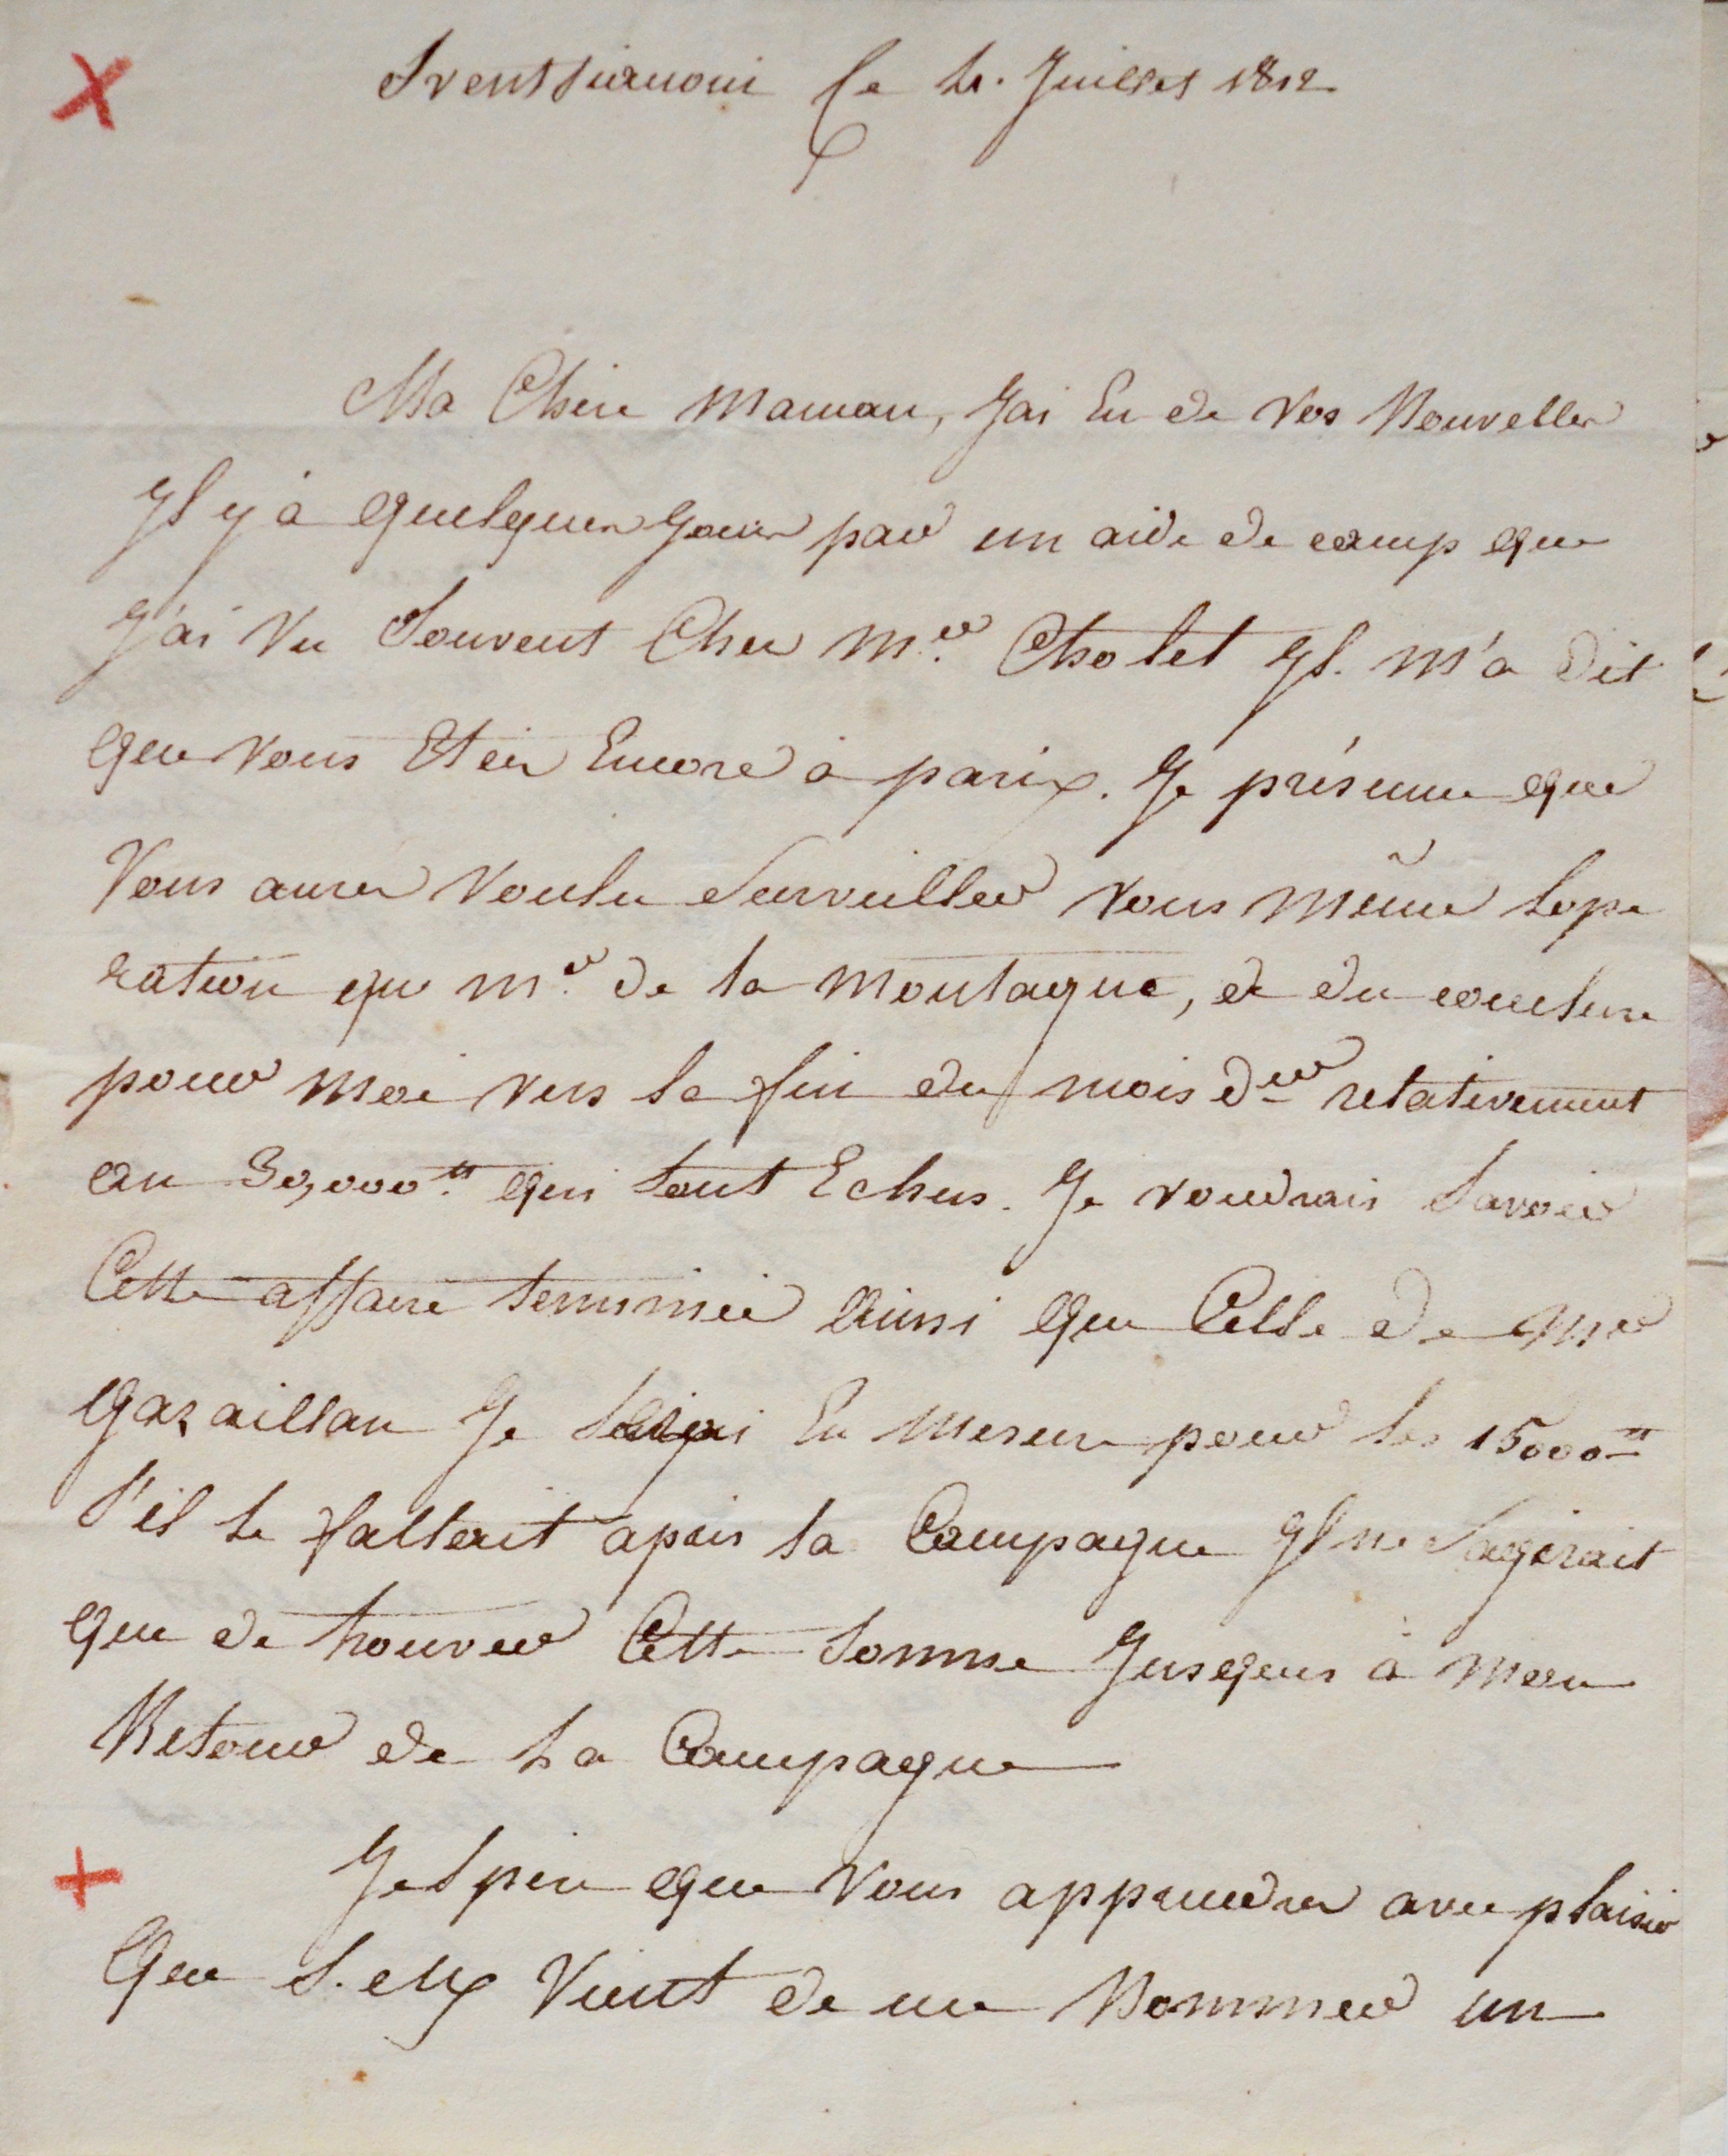 Le 4. Juillet 1812
Ma Chere maman, J'ai Eu de vos Nouvelles
Il y a quelques Jours par un aide de camp que
J'ai vu Souvent Chez Mr. Cholet Il. m'a dit
que vous Etiez Encore à paris. Je présume que
Vous aurez voulu Surveiller vous même lope
ration que Mr. de la Montagne, a du conclure
pour moi vers la fin du mois der relativement
au 30,000tt qui sont Echus. Je voudrais Savoir
Cette affaire terminée Ainsi que Celle de Mr
Gazaillan Je Serai En mesure pour les 15000tt
S'il le fallait après la Campagne Il ne Sagirait
que de trouver Cette Somme Jusques à mon
Retour de La Campagne
Jespere que vous apprendrez avec plaisir
Que S. M. Vient de me Nommer un